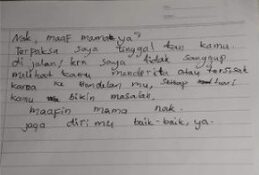 Nak, maaf mamak ya?
Terpaksa saya tinggal kan kamu
di jalan, krn saya tidak sanggup
melihat kamu menderita atau tersiksa
karna ke bandelan mu, setiap hari
kamu bikin masalah.
maafin mama nak.
jaga diri mu baik-baik, ya.